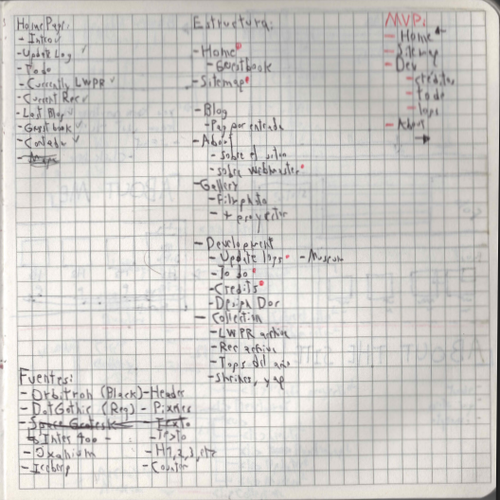 Home Page:
- Intro
- Update Log
- To do
- Currently LWPR
- Current Rec
- Last Blog
- Guestbook
- Contador
Estructura:
- Home
- Guestbook
- Sitemap
- Blog
- Pag por entrada
- About
- sobre el sitio
- sobre webmaster
- Gallery
- Film photo
- + proyectos
- Development
- Update logs - Museum
- To do
- Credits
- Design Doc
- Collection
- LWPR archive
- Rec archive
- Tops del año
- Shrines, y ap
MVP:
- Home
- Sitemap
- Dev
- Creditos
- To do
- logs
- About
Fuentes:
- Orbitron (Black) - Header
- DotGothic (Reg) - Pixares
- Space Grotesk - Texto
Inter 400 - - Texto
- Oxanium - H1, 2, 3, etc
- Iceberg - Counter